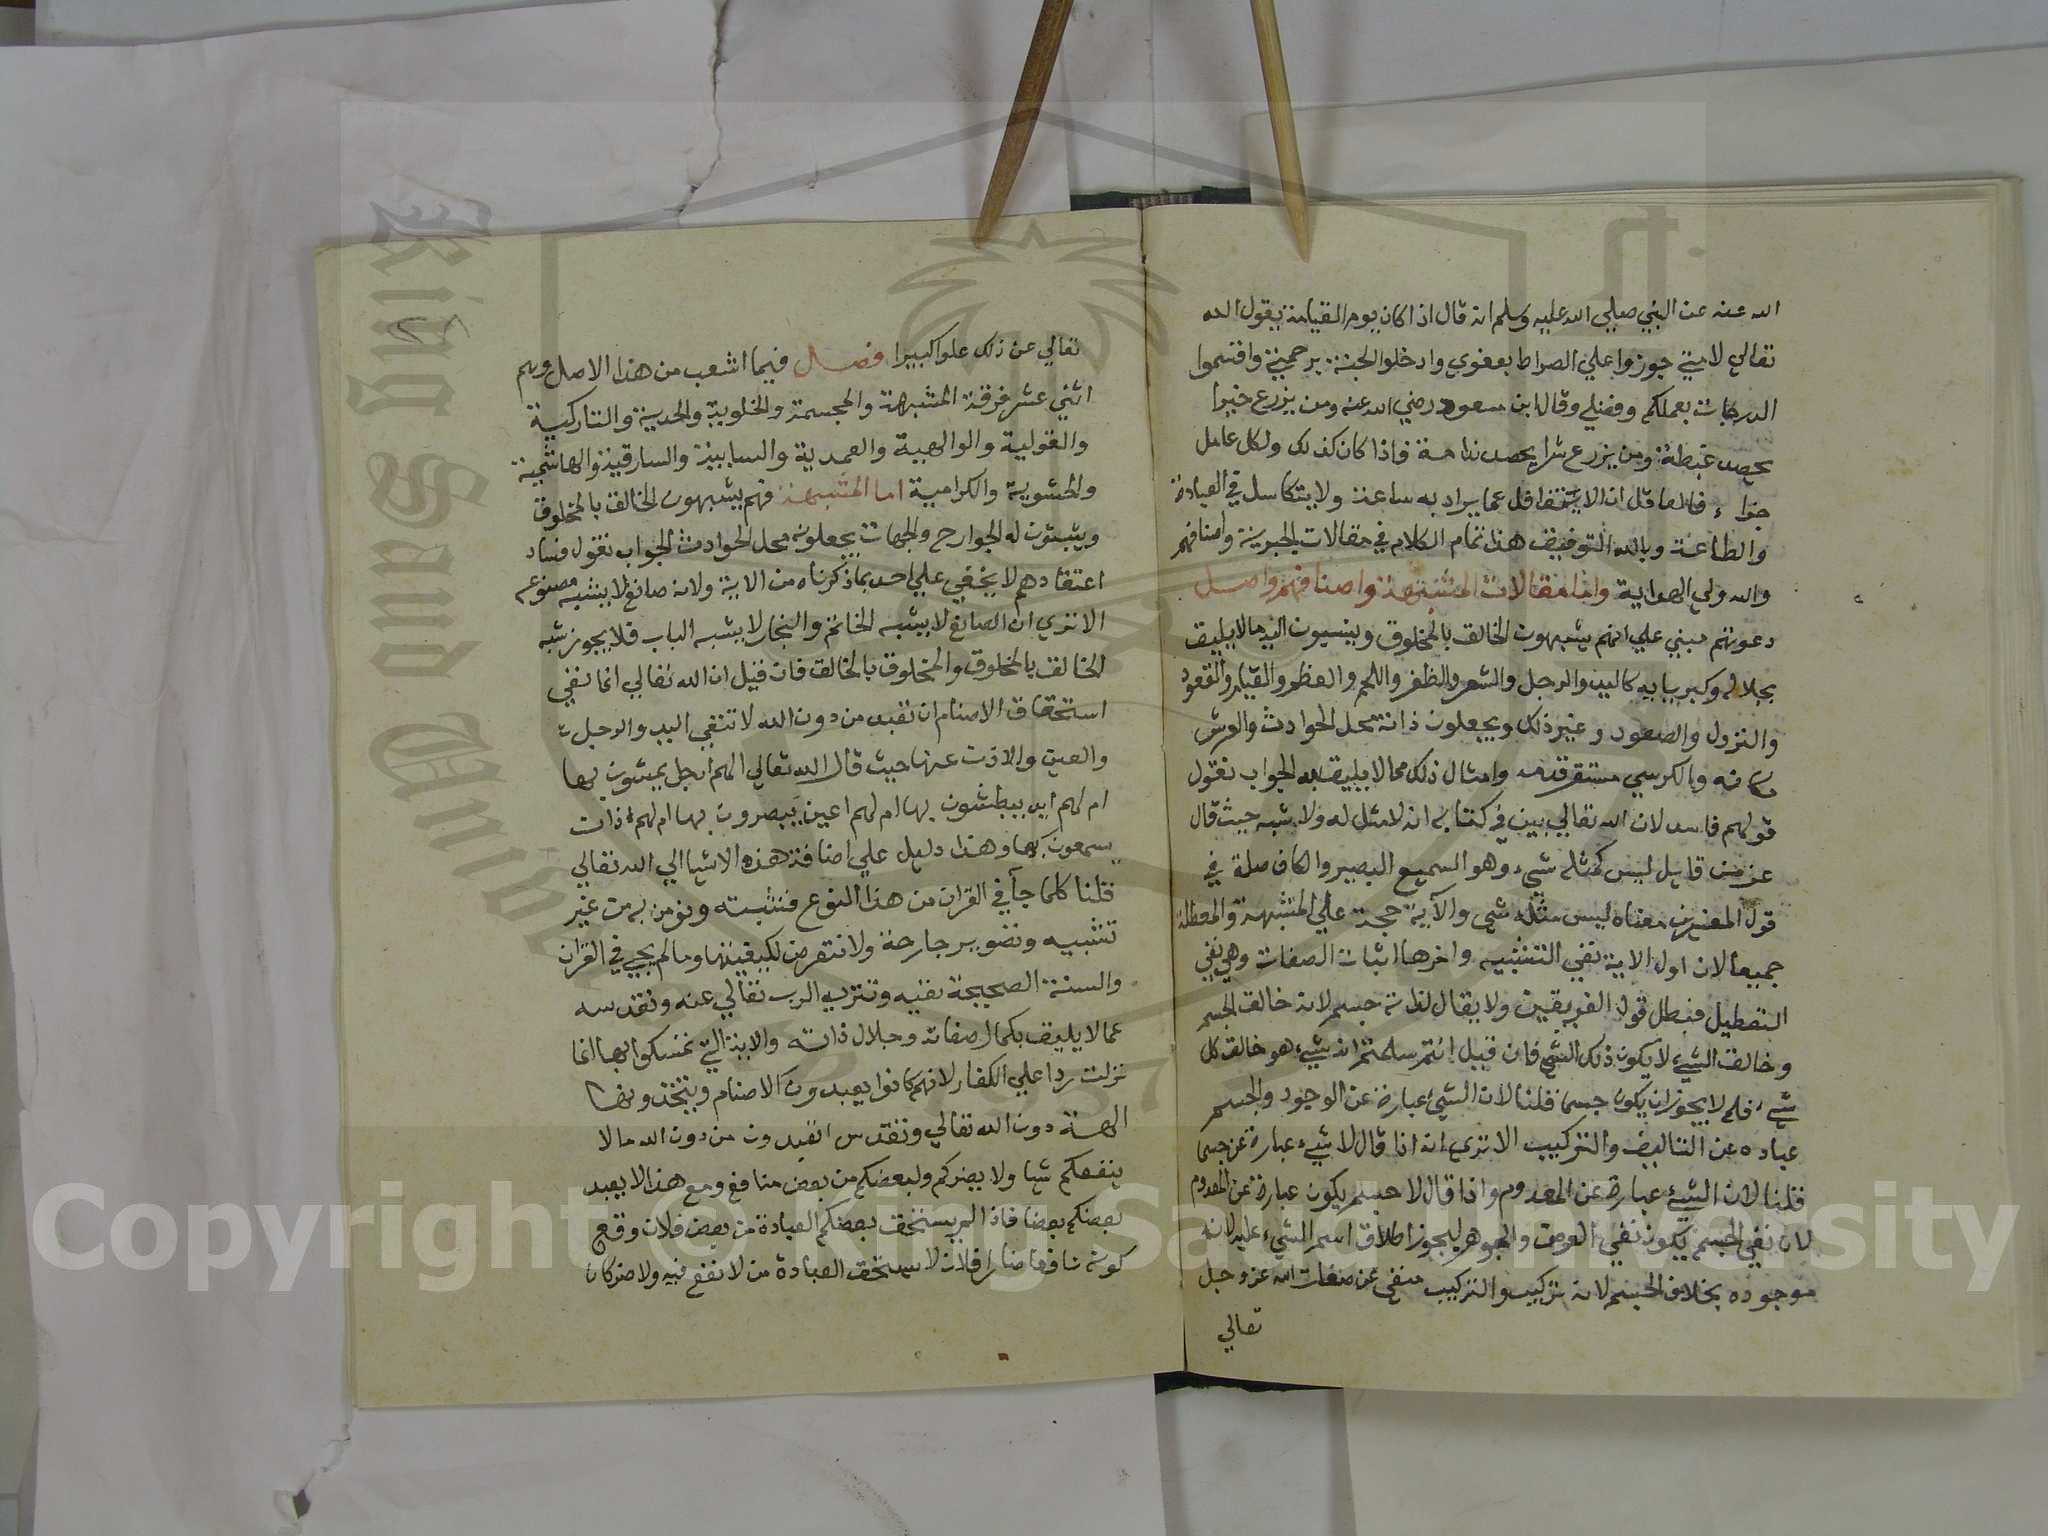 الله عنه عن النبي صلي الله عليه وسلم انه قال اذا كان يوم القيامة يقول الله
تعالي لامتي جوزوا علي الصراط بعفوي وادخلوا الجنة برحمتي واقتسموا
الدرجات بعملكم وفضلي وقال ابن مسعود رضي الله عنه ومن يزرع خيرا
يحصد غبطة ومن يزرع شرا يحصد ندامة فاذا كان كذلك ولكل عامل
جزاء فالعاقل ان لا يتغافل عما يراد به ساعة ولا يتكاسل في العبادة
والطاعة وبالله التوفيق هذا تمام الكلام في مقالات الجبرية واصنافهم
والله ولي الهداية واما مقالات المشبهة واصنافهم واصل
دعوتهم مبني علي انهم يشبهون الخالق بالمخلوق وينسبون اليه ما لا يليق
بجلاله وكبريايه كاليد والرجل والشعر والظفر واللحم والعظم والقيام والقعود
والنزول والصعود وغير ذلك ويجعلون ذاته محل الحوادث والعرش
مكانه وبالكرسي مستقر قدمه وامثال ذلك مما لا يليق به الجواب نقول
قولهم فاسد لان الله تعالي بين في كتابه انه لا مثل له ولا شبه حيث قال
عز من قايل ليس كمثله شيء وهو السميع البصير والكاف صلة في
قول المفسرين معناه ليس مثله شي والآية حجة علي المشبهة والمعطلة
جميعا لان اول الاية نفي التشبيه واخرها اثبات الصفات وهي نفي
التعطيل فبطل قول الفريقين ولا يقال لذاته جسم لانه خالق الجسم
وخالق الشيء لا يكون ذلك الشي فان قيل انتم سلمتم انه شيء هو خالق كل
شيء فلم لا يجوز ان يكون جسما قلنا لان الشيء عبارة عن الوجود والجسم
عباده عن التاليف والتركيب الا تري انه اذا قال لا شيء عبارة عن جسما
قلنا لان الشيء عبارة عن المعدوم واذا قال لا جسم يكون عبارة عن المعدوم
لان نفي الجسم يكون نفي العرض والجوهر ليجوز اطلاق اسم الشيء عليه لانه
موجوده بخلاف الجسم لانه تركيب والتركيب منفي عن صفات الله عز وجل
تعالي
تعالي عن ذلك علوا كبيرا فصل فيما انشعب من هذا الاصل وهم
اثني عشر فرقة المشبهة والمجسمة والخلوية والحدية والتاركية
والقولية والوالهية والعمدية والسابية والسارقية والهاشمية
والحشوية والكرامية اما المشبهة فهم يشبهون الخالق بالمخلوق
ويثبتون له الجوارح والجهات يجعلونه محل الحوادث الجواب نقول فساد
اعتقادهم لا يخفي علي احد بما ذكرناه من الاية ولانه صانع لا يشبه مصنوعه
الا تري ان الصانع لا يشبه الخاتم والنجار لا يشبه الباب فلا يجوز شبه
الخالق بالمخلوق والمخلوق بالخالق فان قيل ان الله تعالي انما نفي
استحقاق الاصنام ان تعبد من دون الله لا تنفي اليد والرجل
والعين والاذن عنها حيث قال الله تعالي الهم ارجل يمشون بها
ام لهم ايد يبطشون بها ام لهم اعين يبصرون بها ام لهم اذان
يسمعون بها وهذا دليل علي اضافة هذه الاشيا الي الله تعالي
قلنا كلما جآ في القران من هذا النوع فنثبته ونومن به من غير
تشبيه وتصوير جارحة ولا نتعرض لكيفيتها وما لم يجي في القران
والسنة الصحيحة نفيه وتنزيه الرب تعالي عنه ونقدسه
عما لا يليق بكمال صفاته وجلال ذاته والاية التي تمسكوا بها انما
نزلت ردا علي الكفار لانهم كانوا يعبدون الاصنام ويتخذونها
الهة دون الله تعالي وتقدس اتعبدون من دون الله ما لا
ينفعكم شيا ولا يضركم ولبعضكم من بعض منافع ومع هذا لا يعبد
بعضكم بعضا فاذا لم يستحق بعضكم العبادة من بعض فلان وقع
كونه نافعا ضارا فلان لا يستحق العبادة من لا نفع فيه ولا ضر كان
King Saud University
Copyright © King Saud University